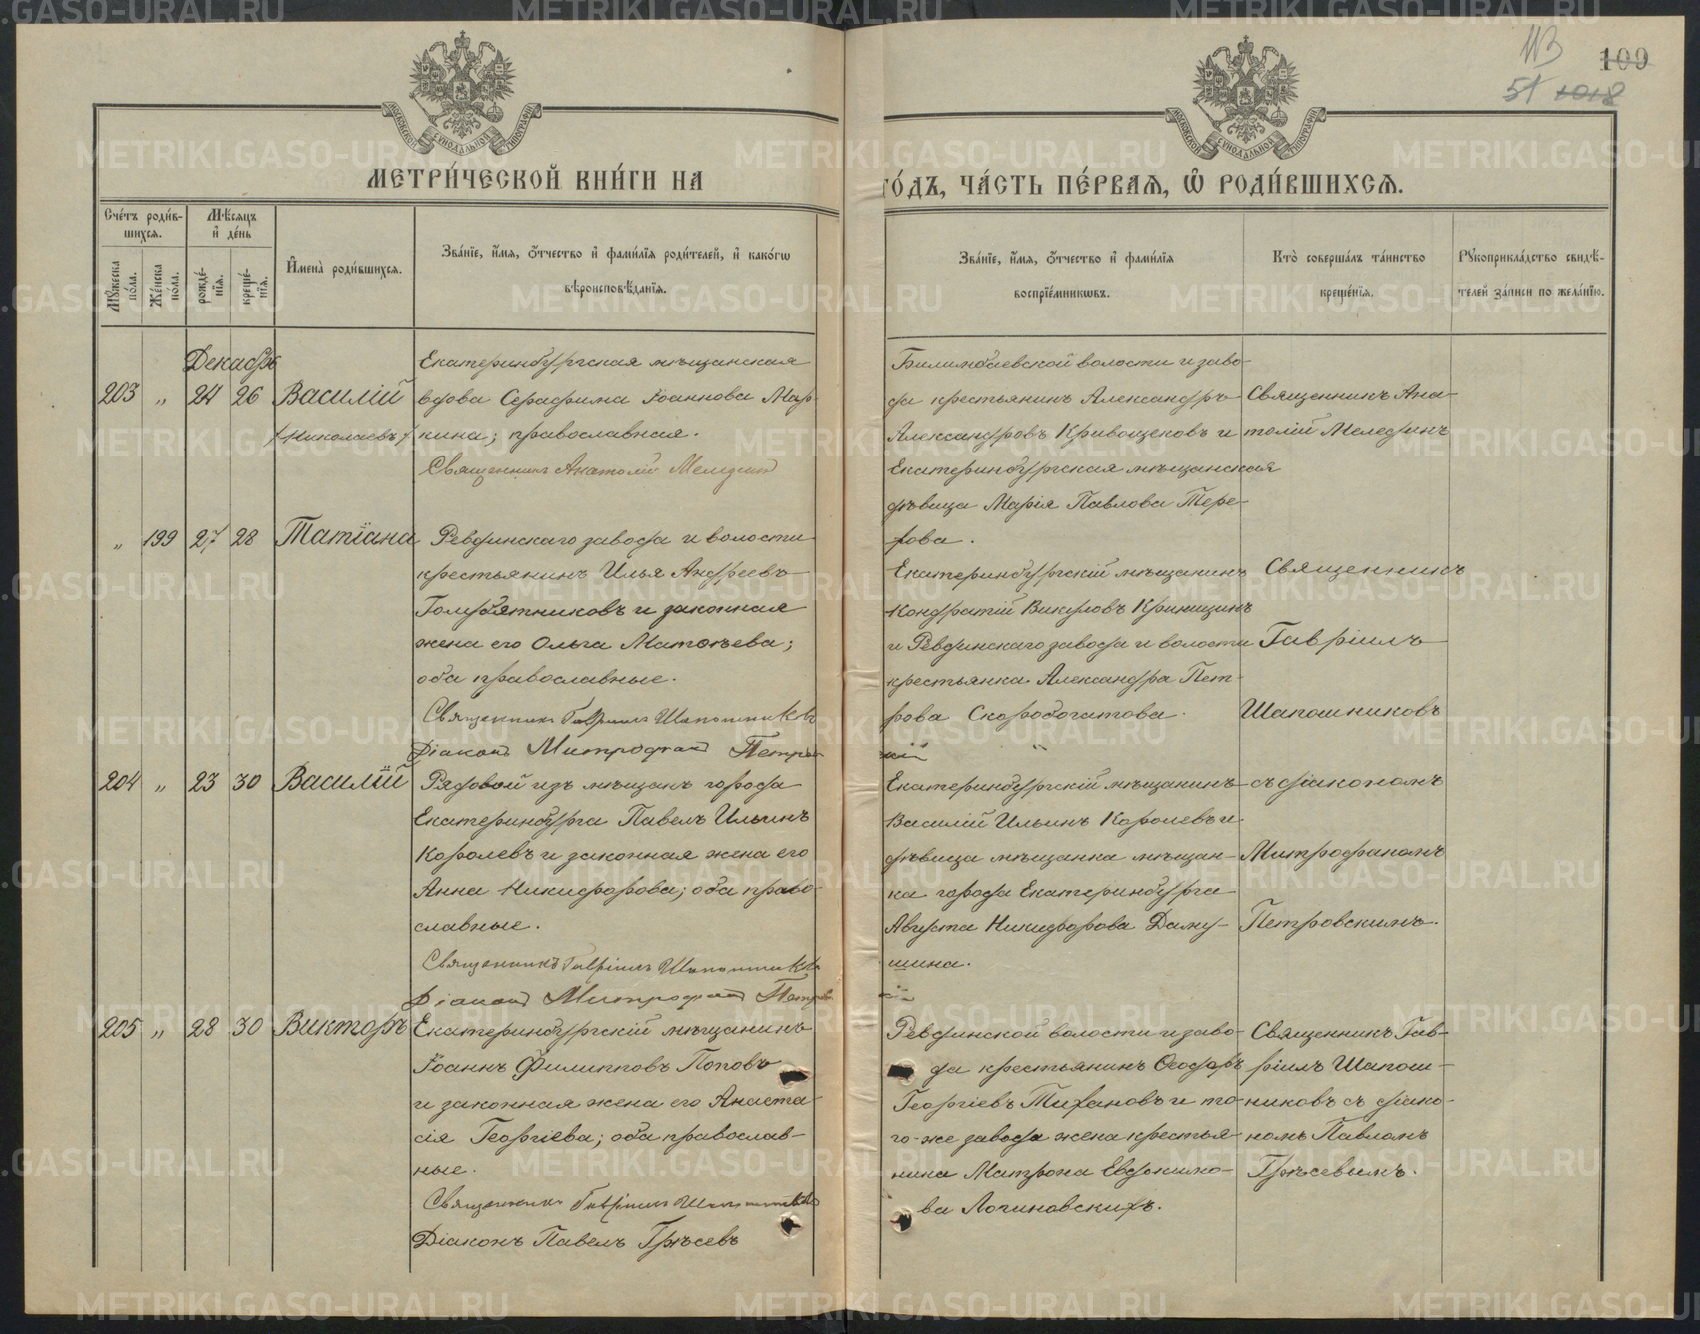 113
109
51 1018
МОСКОВСКОЙ СУНОДАЛЬНОЙ ТИПОГРАФІИ
МОСКОВСКОЙ СУНОДАЛЬНОЙ ТИПОГРАФІИ
МЕТРИ́ЧЕСКОЙ КНИ́ГИ НА
ГО́ДЪ, ЧА́СТЬ ПЕ́РВАѦ, Ѽ РОДИ́ВШИХСѦ.
Сче́тъ роди́в-
шихсѧ.
Мꙋ́жеска по́ла.
Же́нска по́ла.
Мѣ́сѧцъ
и҆ де́нь
рожде́-
нїѧ.
креще́-
нїѧ.
И҆мена̀ роди́вшихсѧ.
Зва́нїе, и҆́мѧ, ѻ҆́тчество и҆ фамилїѧ роди́телей, и҆ како́гѡ
вѣроисповѣ́данїѧ.
Зва́нїе, и҆́мѧ, ѻ҆́тчество и҆ фами́лїѧ
воспрїе́мникѡвъ.
Кто̀ соверша́лъ та́инство
креще́нїѧ.
Рꙋкоприкла́дство свидѣ́-
телей за́писи по жела́нїю.
Декабрь
203 „ 24 26 Василій
/Николаевъ/
Екатеринбургская мѣщанская
вдова Серафима Іоаннова Мар
кина; православная.
Священникъ Анатолій
Билимбаевской волости и заво-
да крестьянинъ Александръ
Александровъ Кривощековъ и
Екатеринбургская мѣщанская
дѣвица Марія Павлова Тере-
хова.
Священникъ Ана-
толій Мелединъ
„ 199 27 28 Татіана
Ревдинскаго завода и волости
крестьянинъ Илья Андреевъ
Голубятниковъ и законная
жена его Ольга Матѳѣева;
оба православные.
Священникъ Гавріилъ Шапошниковъ
Діаконъ Митрофанъ Петров
Екатеринбургскій мѣщанинъ
Кондратій Викуловъ Криницинъ
и Ревдинскаго завода и волости
крестьянка Александра Пет-
рова Скоробогатова.
Священникъ
Гавріилъ
Шапошниковъ
204 „ 23 30 Василій
Рядовой изъ мѣщанъ города
Екатеринбурга Павелъ Ильинъ
Королевъ и законная жена его
Анна Никифорова; оба право-
славные.
Священникъ Гавріилъ Шапошников
Діаконъ Митрофанъ Петров
Екатеринбургскій мѣщанинъ
Василій Ильинъ Королевъ и
дѣвица мѣщанка мѣщан-
ка города Екатеринбурга
Августа Никифорова
шина.
съ діакономъ
Митрофаномъ
Петровскимъ.
205 „ 28 30 Викторъ
Екатеринбургскій мѣщанинъ
Іоаннъ Филипповъ Поповъ
и законная жена его Анаста-
сія Георгіева; оба православ-
ные.
Священникъ Гавріилъ Шапошниковъ
Діаконъ Павелъ Грѣсевъ
Ревдинской волости и заво-
да крестьянинъ Ѳеодоръ
Георгіевъ Тихановъ и то-
го-же завода жена крестья-
нина Матрона Евдокимо-
ва Логиновскихъ.
Священникъ Гав-
ріилъ Шапош-
никовъ съ діако-
номъ Павломъ
Грѣсевымъ.
METRIKI.GASO-URAL.RU